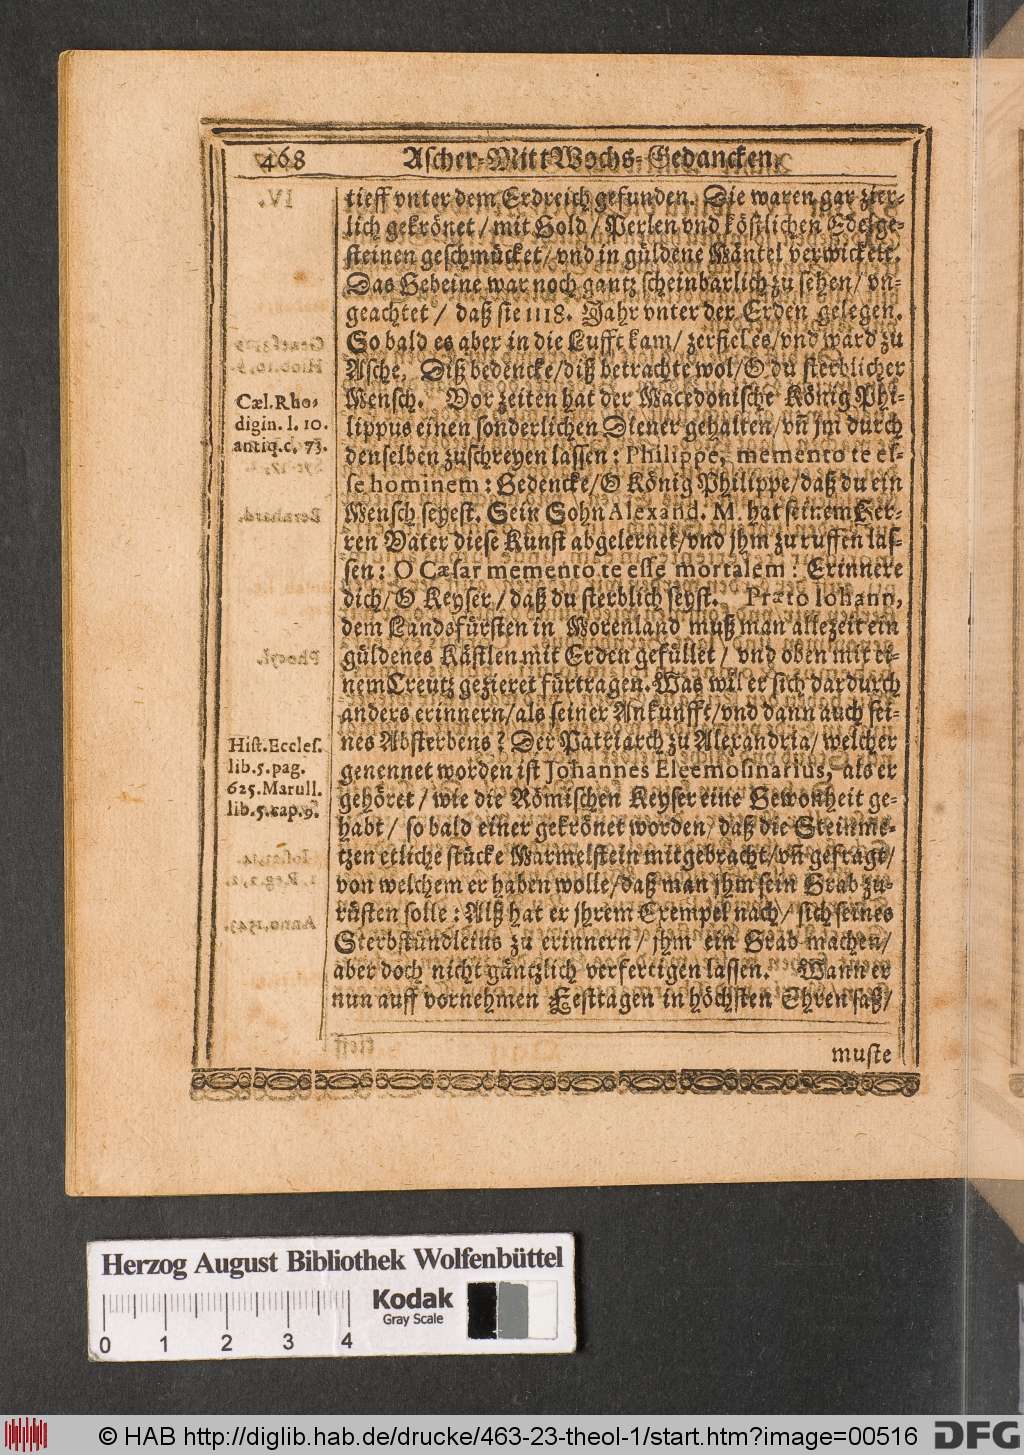 468 Ascher-MittWochs-Gedancken.
tieff vnter dem Erdreich gefunden. Die waren gar zier-
lich gekrönet / mit Gold / Perlen vnd köstlichen Edelge-
steinen geschmücket / vnd in güldene Mäntel verwickelt.
Das Gebeine war noch gantz scheinbarlich zu sehen / vn-
geachtet / daß sie 1118. Jahr vnter der Erden gelegen.
So bald es aber in die Lufft kam / zerfiel es / vnd ward zu
Asche. Diß bedencke / diß betrachte wol / O du sterblicher
Mensch. Vor zeiten hat der Macedonische König Phi-
lippus einen sonderlichen Diener gehalten / vñ jm durch
denselben zuschreyen lassen: Philippe, memento te es-
se hominem: Gedencke / O König Philippe / daß du ein
Mensch seyest. Sein Sohn Alexand. M. hat seinem Her-
ren Vater diese Kunst abgelernet / vnd jhm zu ruffen las-
sen: O Cæsar memento te esse mortalem: Erinnere
dich / O Keyser / daß du sterblich seyst. Præto Iohann,
dem Landsfürsten in Morenland muß man allezeit ein
güldenes Kästlen mit Erden gefüllet / vnd oben mit ei-
nem Creutz gezieret fürtragen. Was wil er sich dardurch
anders erinnern / als seiner Ankunfft / vnd dann auch sei-
nes Absterbens? Der Patriarch zu Alexandria / welcher
genennet worden ist Johannes Eleemosinarius, als er
gehöret / wie die Römischen Keyser eine Gewonheit ge-
habt / so bald einer gekrönet worden / daß die Steinme-
tzen etliche stücke Marmelstein mitgebracht / vñ gefragt /
von welchem er haben wolle / daß man jhm sein Grab zu-
rüsten solle: Alß hat er jhrem Exempel nach / sich seines
Sterbstündleins zu erinnern / jhm ein Grab machen /
aber doch nicht gäntzlich verfertigen lassen. Wann er
nun auff vornehmen Festtagen in höchsten Ehren saß /
muste
Cæl. Rho-
digin. l. 10.
antiq. c. 73.
Hist. Eccles.
lib. 5. pag.
625. Marull.
lib. 5. cap. 9.
Herzog August Bibliothek Wolfenbüttel
Kodak
Gray Scale
0 1 2 3 4
© HAB http://diglib.hab.de/drucke/463-23-theol-1/start.htm?image=00516
DFG